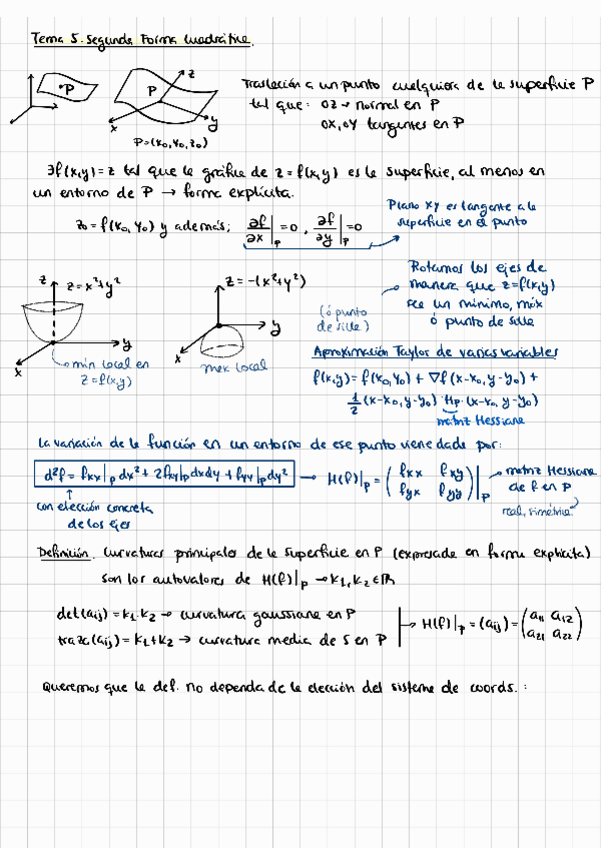 Tema 5. Segunda Forma Cuadrática.
P
Z
P
x
y
P=(x₀,y₀,z₀)
Traslación a un punto cualquiera de la superficie P
tal que: OZ → normal en P
OX, OY tangentes en P
∃f(x,y)=z tal que la gráfica de z=f(x,y) es la superficie, al menos en
un entorno de P → forma explícita.
z₀ = f(x₀,y₀) y además; ∂f/∂x|p =0, ∂f/∂y|p =0
Plano XY es tangente a la
superficie en el punto
z
z=x²+y²
y
x
mín local en
z=f(x,y)
z=-(x²+y²)
y
x
max local
(ó punto
de silla)
Rotamos los ejes de
manera que z=f(x,y)
sea un mínimo, máx
ó punto de silla
Aproximación Taylor de varias variables
f(x,y)= f(x₀,y₀) + ∇f (x-x₀, y-y₀) +
1/2 (x-x₀, y-y₀) · Hp · (x-x₀, y-y₀)
matriz Hessiana
La variación de la función en un entorno de ese punto viene dada por:
d²f = fxx|p dx² + 2fxy|p dxdy + fyy|p dy² → H(f)|p = (fxx fxy
fyx fyy)|p
→ matriz Hessiana
de f en P
real, simétrica
con elección concreta
de los ejes
Definición. Curvaturas principales de la superficie en P (expresada en forma explícita)
son los autovalores de H(f)|p → k₁, k₂ ∈ ℝ
det(aij) = k₁·k₂ → curvatura gaussiana en P
traza(aij) = k₁+k₂ → curvatura media de S en P
→ H(f)|p = (aij) = (a₁₁ a₁₂
a₂₁ a₂₂)
Queremos que la def. no dependa de la elección del sistema de coords. :